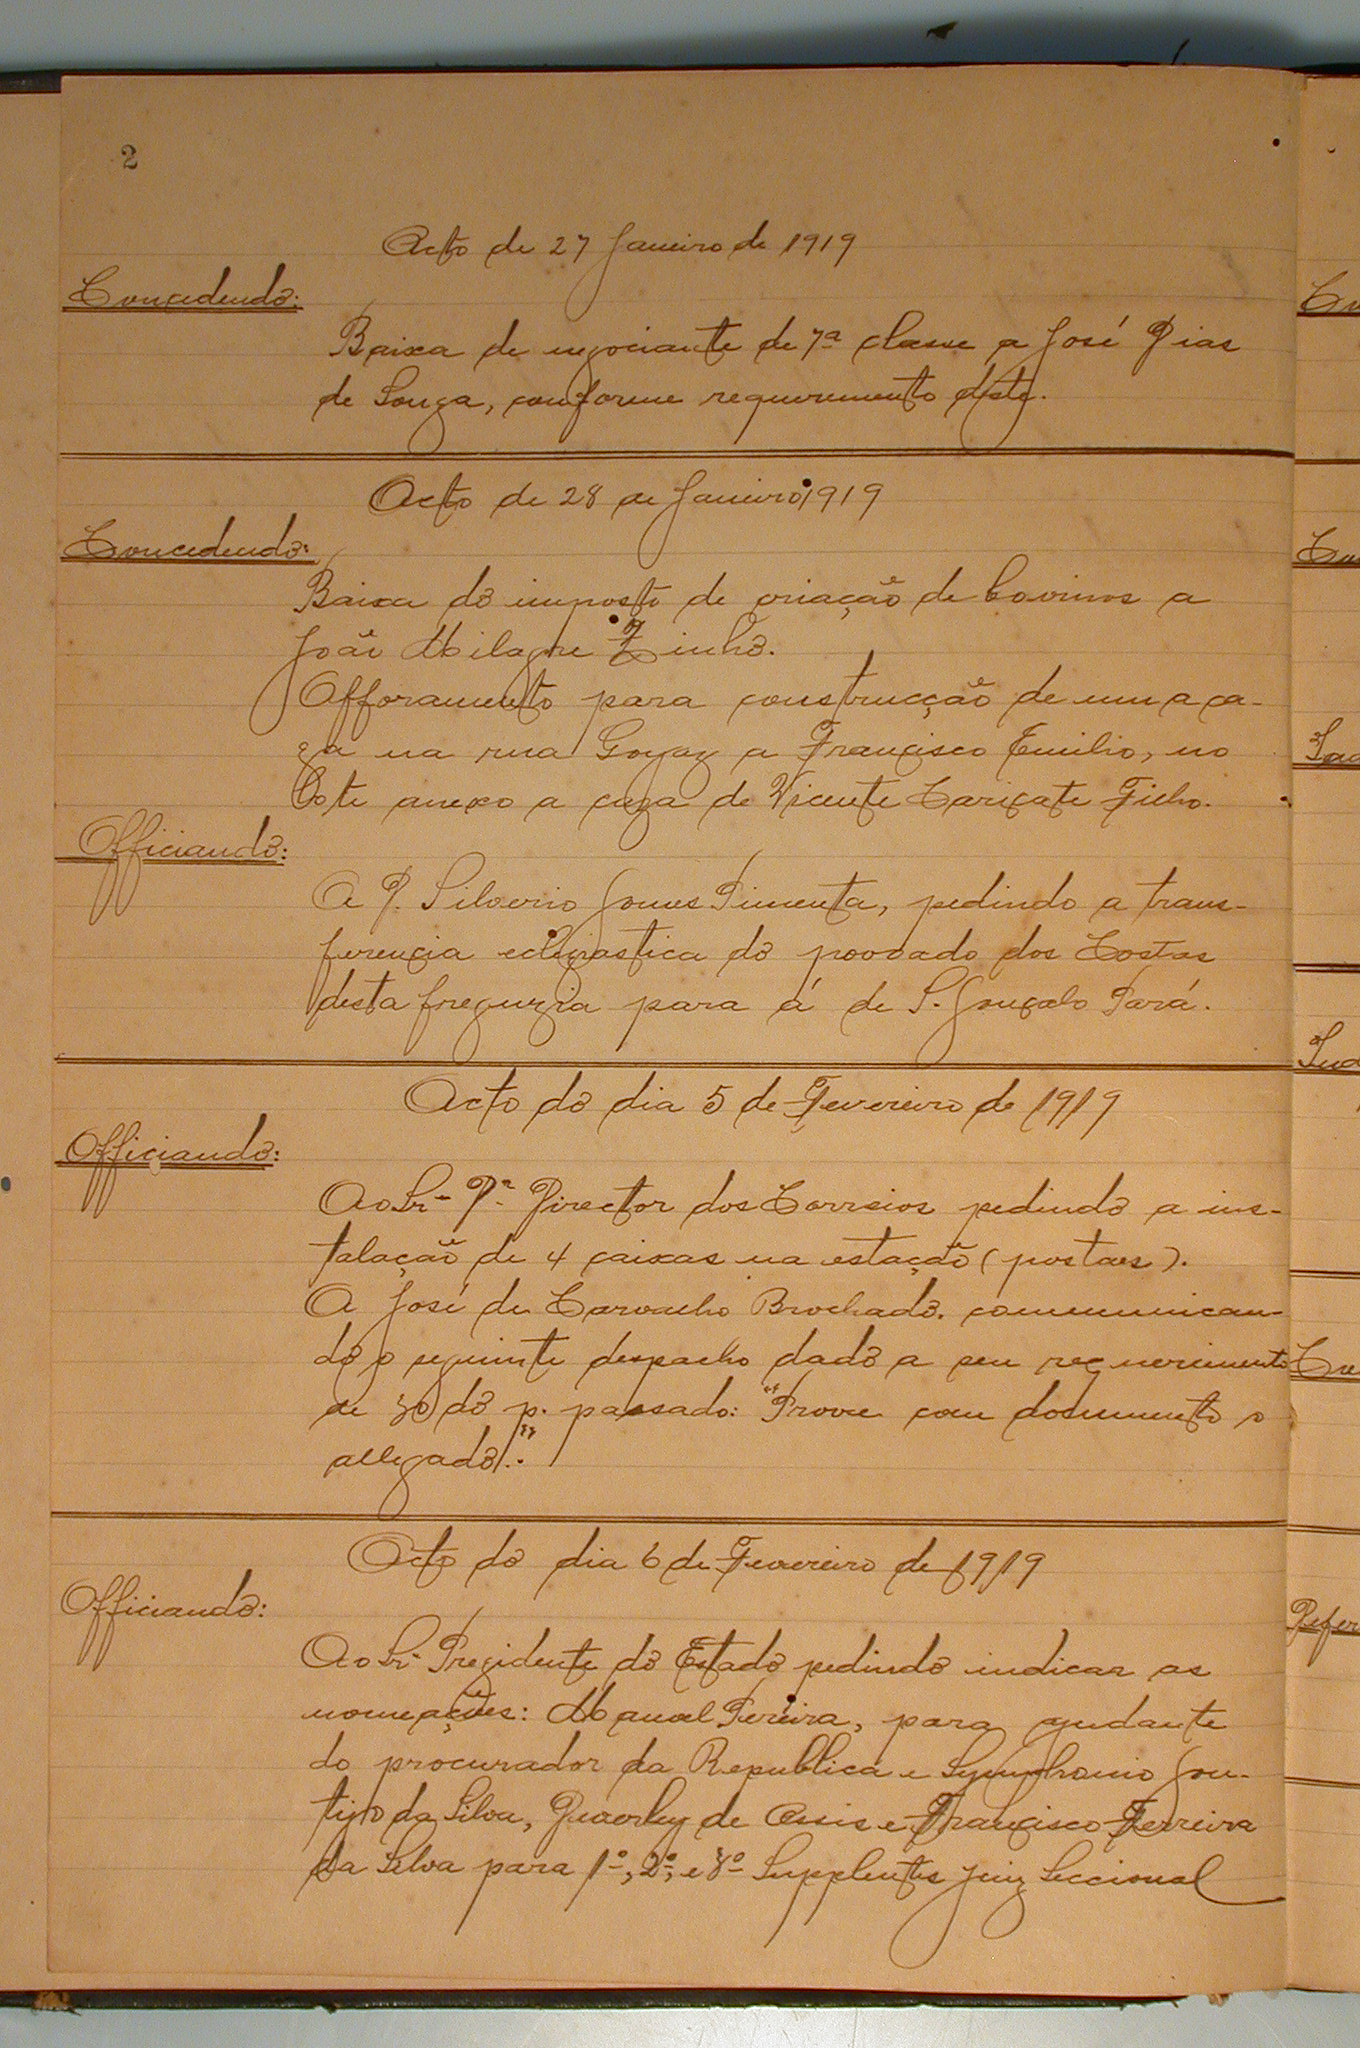 2
Acto de 27 Janeiro de 1919
Concedendo:
Baixa de negociante de 7ª classe a José Dias
de Souza, conforme requerimento d'ste.
Acto de 28 de Janeiro 1919
Concedendo:
Baixa do imposto de criação de bovinos a
João Milagre Zinho.
Afforamento para construcção de uma ca-
za na rua Goyaz a Francisco Emilio, no
lote anexo a caza de Vicente Caricate Filho.
Officiando:
A D. Silverio Gomes Pimenta, pedindo a trans-
ferencia eclesiastica do povoado dos Costas
desta freguezia para á de S. Gonçalo Pará.
Acto do dia 5 de Fevereiro de 1919
Officiando:
Ao Snr. Dr. Director dos Correios pedindo a ins-
talação de 4 caixas na estação (postaes).
A José de Carvalho Brochado. communican-
do o seguinte despacho dado a seu requerimento
de 30 do p. passado: "Prove com documento o
allegado".
Acto do dia 6 de Fevereiro de 1919
Officiando:
Ao Snr. Prezidente do Estado pedindo indicar as
nomeações: Manoel Pereira, para ajudante
do procurador da Republica e Symphronio Gon-
tijo da Silva, de Assis e Francisco Ferreira
da Silva para 1º, 2º, e 3º Supplentes juiz Seccional